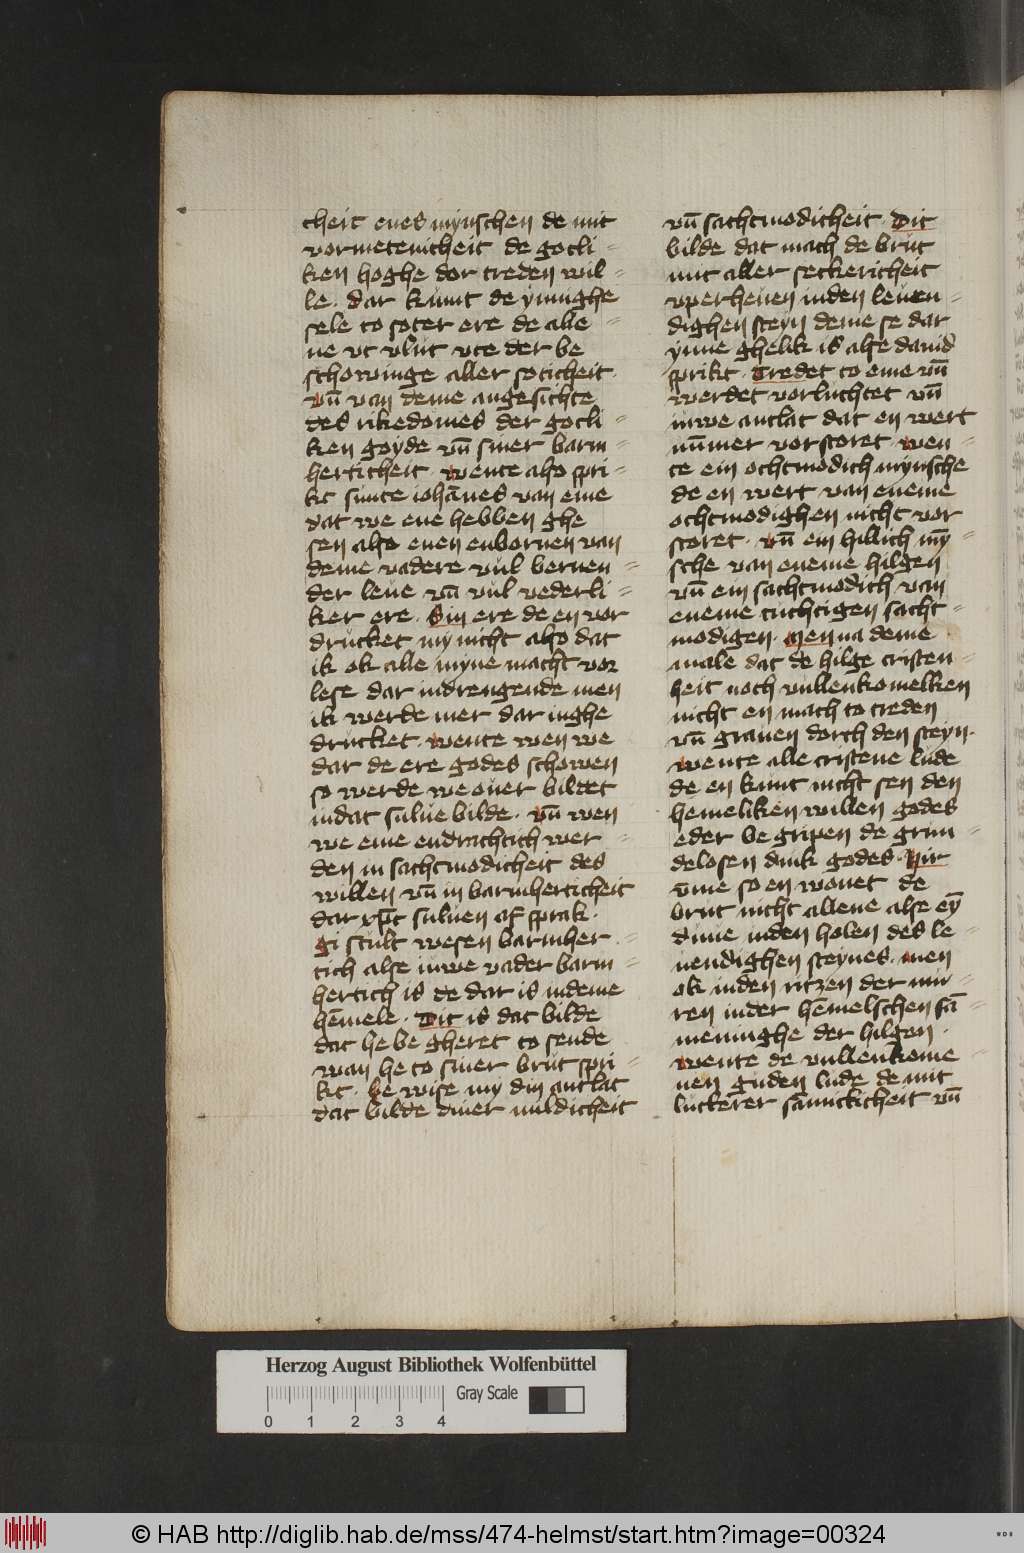 cheit enes mynschen de mit
vormetenicheit de gotli=
ken hoghe dor treden wil=
le. dar kumt de ynnighe
sele to soter ere de alle=
ne vt vlut vte der be
schowinge aller soticheit.
vn̄ van deme angesichte
des rikedomes der gotli=
ken goyde vn̄ siner barm=
herticheit. wente also spri=
kt sunte iohānes van eme
dat we ene hebben ghe
sen also enen enbornen van
deme vadere vul bernen=
der leue vn̄ vul vederli=
ker ere. Sin ere de en vor
drucket my nicht also dat
ik ok alle myne macht vor
lese dar indrengende men
ik werde mer dar inghe
drucket. wente wen we
dar de ere godes schowen
so werde we ouer bildet
indat sulue bilde. vn̄ wen
we eme endrachtich wer=
den in sachtmodicheit des
willen vn̄ in barmherticheit
dar xp̄c suluen af sprak.
gi scult wesen barmher=
tich alse iuwe vader barm=
hertich is de dar is indeme
hēmele. Dit is dat bilde
dat he be gheret to sende
wan he to siner brut spri=
kt. he wise my din antlat
dat bilde diner mildicheit
vn̄ sachtmodicheit. Dit
bilde dat mach de brut
mit aller seckericheit
vperheuen inden leuen=
dighen steyn deme se dar
ynne ghelik is alse dauid
sprikt. Tredet to eme vn̄
werdet vorluchtet vn̄
iuwe antlat dat en wert
nūmer vorstoret. wen=
te ein othmodich mynsche
de en wert van eneme
othmodighen nicht vor
storet. vn̄ ein hillich my̅=
sche van eneme hilgen
vn̄ ein sachtmodich van
eneme tuchtigen sacht=
modigen. Men na deme
male dat de hilge cristen=
heit noch vullenkomelken
nicht en mach to treden
vn̄ grauen dorch den steyn.
wente alle cristene lude
de en kunt nicht sen den
hemeliken willen godes
eder be gripen de grun=
delosen dink godes. Hir
v̄me so en wonet de
brut nicht allene alse ey̅
duue inden holen des le=
uendighen steynes. men
ok inden ritzen der mu=
ren inder hēmelschen sā=
meninghe der hilgen.
wente de vullenkome=
nen guden lude de mit
luckerer sāmickicheit vn̄
Herzog August Bibliothek Wolfenbüttel
Gray Scale
0 1 2 3 4
© HAB http://diglib.hab.de/mss/474-helmst/start.htm?image=00324